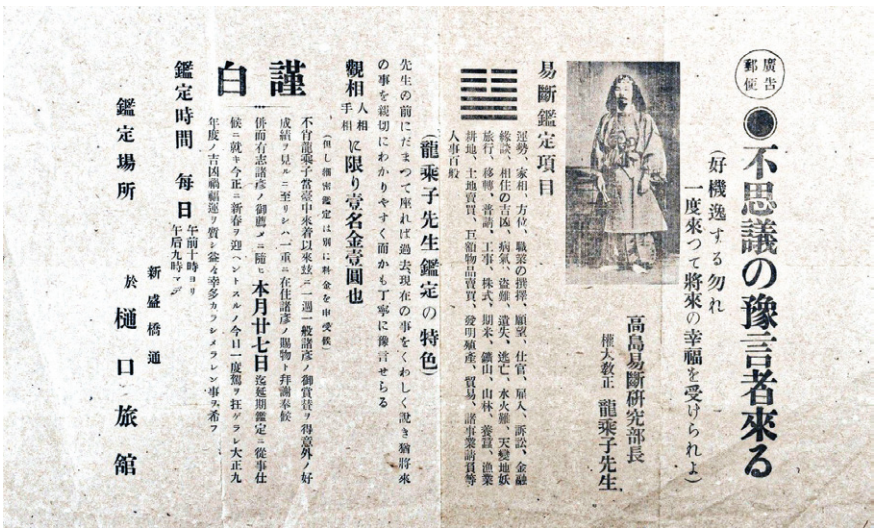 廣告
郵便
●不思議の豫言者來る
(好機逸する勿れ
一度來つて將來の幸福を受けられよ)
高島易斷硏究部長
權大敎正 龍乘子先生
易斷鑑定項目
運勢、家相、方位、職業の撰擇、願望、仕官、雇人、訴訟、金融
緣談、相住の吉凶、病氣、盜難、遺失、逃亡、水火難、天變地妖
旅行、移轉、普請、工事、株式、期米、鑛山、山林、養蠶、漁業
耕地、土地賣買、巨額物品賣買、發明殖產、貿易、諸事業請負等
人事百般
(龍乘子先生鑑定の特色)
先生の前にだまつて座れば過去現在の事をくわしく說き猶將來
の事を親切にわかりやすく而かも丁寧に豫言せらる
觀相 人相 手相 に限り壹名金壹圓也
(但し細密鑑定は別に料金を申受候)
謹白
不肖龍乘子當臺中來着以來玆ニ一週一般諸彥ノ御賞賛ヲ得意外ノ好
成績ヲ見ルニ至リシハ一重ニ在住諸彥ノ賜物ト拜謝奉候
併而有志諸彥ノ御薦メニ隨ヒ本月廿七日迄延期鑑定ニ從事仕
候ニ就キ今正ニ新春ヲ迎ヘントスルノ今日一度駕ヲ抂ゲラレ大正九
年度ノ吉凶禍福運ヲ質シ益々幸多カラシメラレン事ヲ希フ
鑑定時間 每日 午前十時ヨリ 午后九時マデ
鑑定場所
新盛橋通
於 樋口旅舘